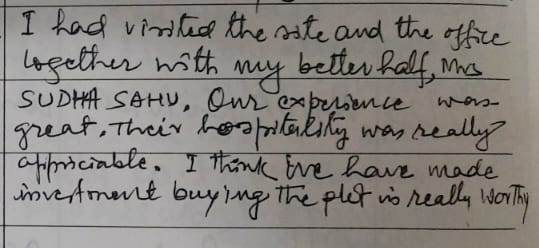 I had visited the site and the office
together with my better half, Mrs
SUDHA SAHU. Our experience was
great. Their hospitality was really
appriciable. I think we have made
investment buying the plot is really worthy